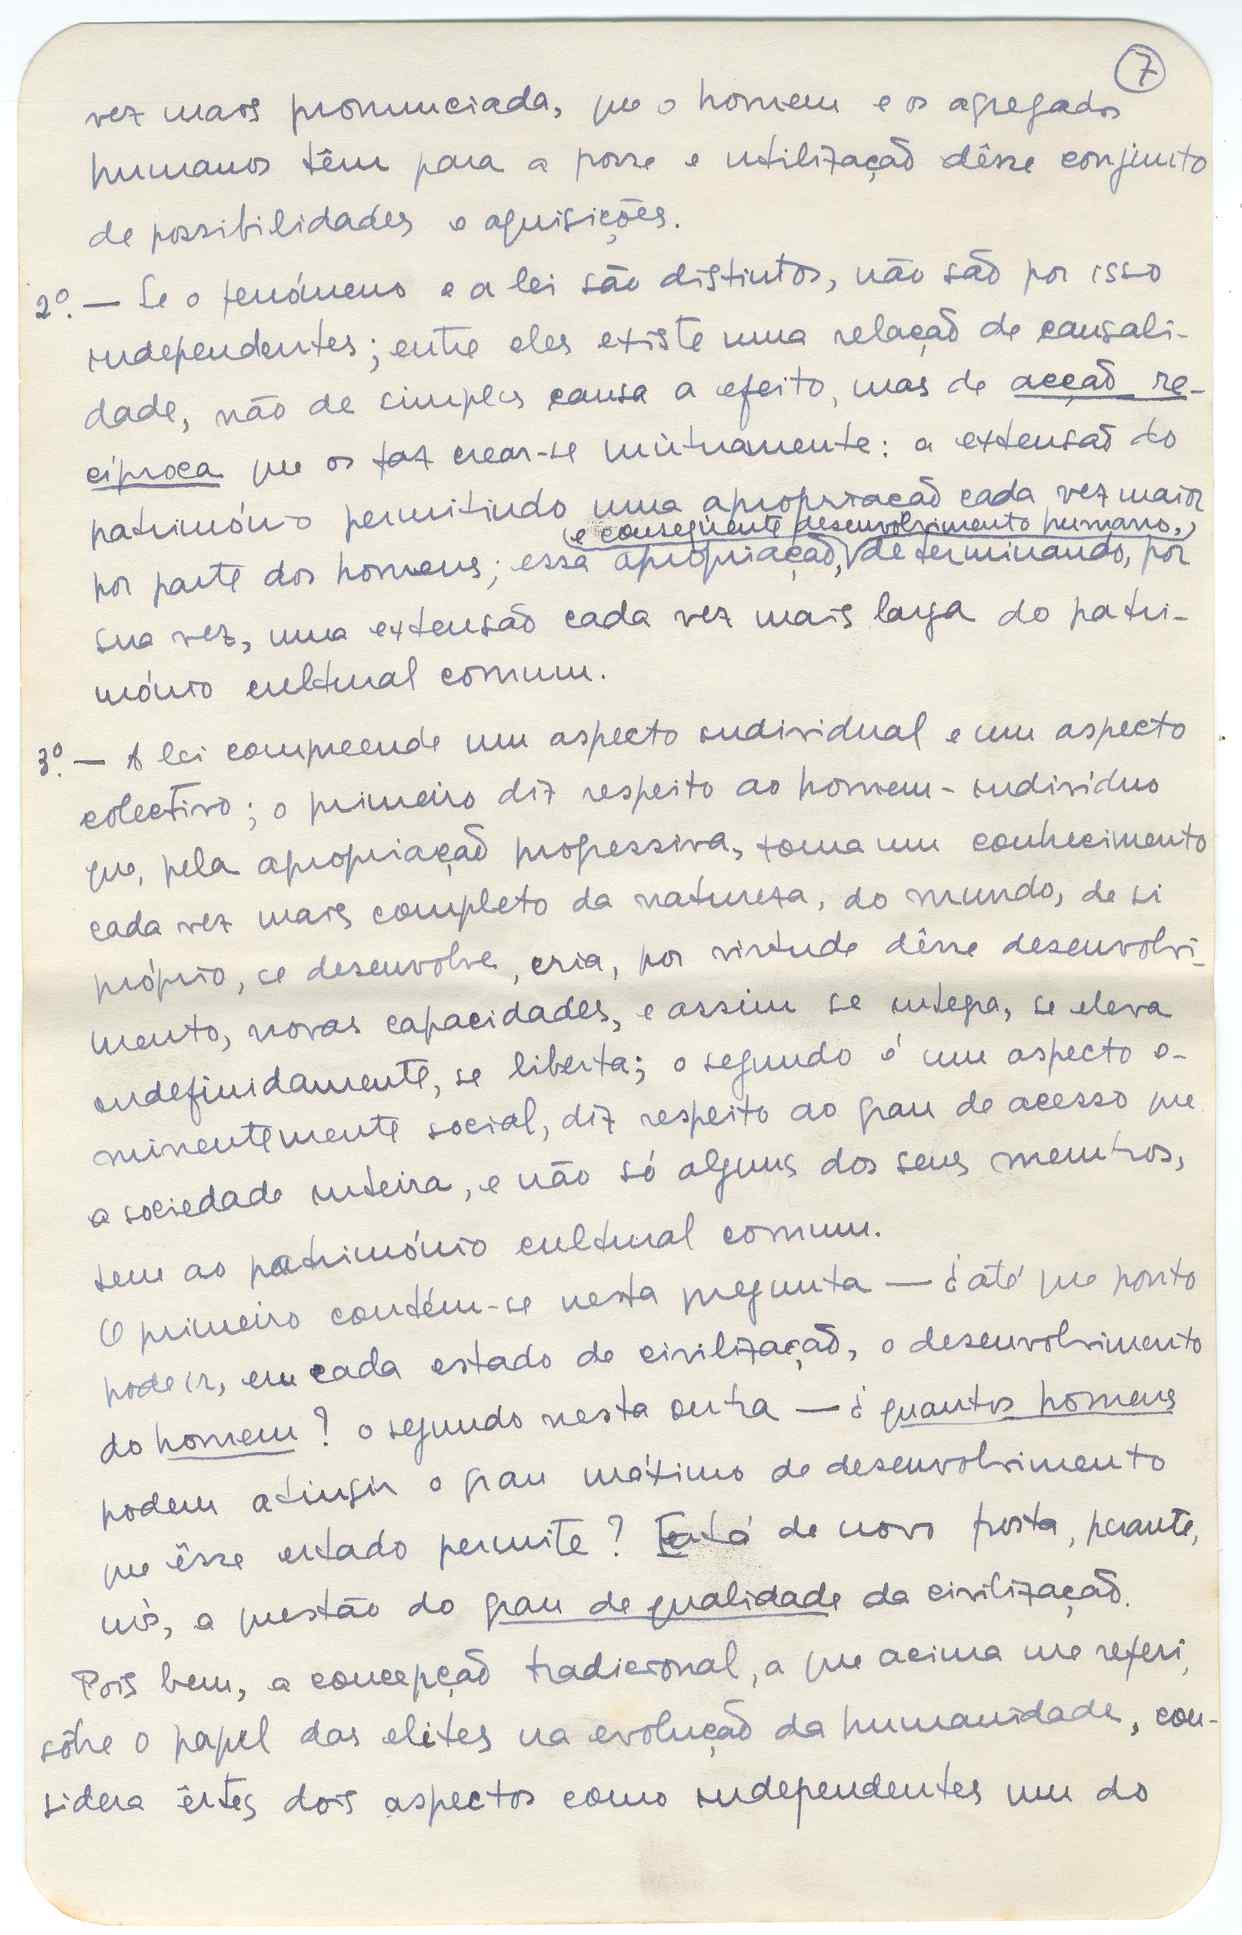 7
vez mais pronunciada, que o homem e os agregados
humanos têm para a posse e utilização dêsse conjunto
de possibilidades e aquisições.
2º. — Se o fenómeno e a lei são distintos, não são por isso
independentes; entre eles existe uma relação de causali-
dade, não de simples causa a efeito, mas de acção re-
cíproca que os faz crear-se mùtuamente: a extensão do
património permitindo uma apropriação cada vez maior
(e conseqüente desenvolvimento humano,)
por parte dos homens; essa apropriação, determinando, por
sua vez, uma extensão cada vez mais larga do patri-
mónio cultural comum.
3º. — A lei compreende um aspecto individual e um aspecto
colectivo; o primeiro diz respeito ao homem-indivíduo
que, pela apropriação progressiva, toma um conhecimento
cada vez mais completo da natureza, do mundo, de si
próprio, se desenvolve, cria, por virtude dêsse desenvolvi-
mento, novas capacidades, e assim se integra, se eleva
indefinidamente, se liberta; o segundo é um aspecto e-
minentemente social, diz respeito ao grau de acesso que
a sociedade inteira, e não só alguns dos seus membros,
tem ao património cultural comum.
O primeiro contém-se nesta pregunta — ¿até que ponto
pode ir, em cada estado de civilização, o desenvolvimento
do homem? o segundo nesta outra — ¿quantos homens
podem atingir o grau máximo de desenvolvimento
que êsse estado permite? Está de novo posta, perante,
nós, a questão do grau de qualidade da civilização.
Pois bem, a concepção tradicional, a que acima me referi,
sôbre o papel das elites na evolução da humanidade, con-
sidera êstes dois aspectos como independentes um do